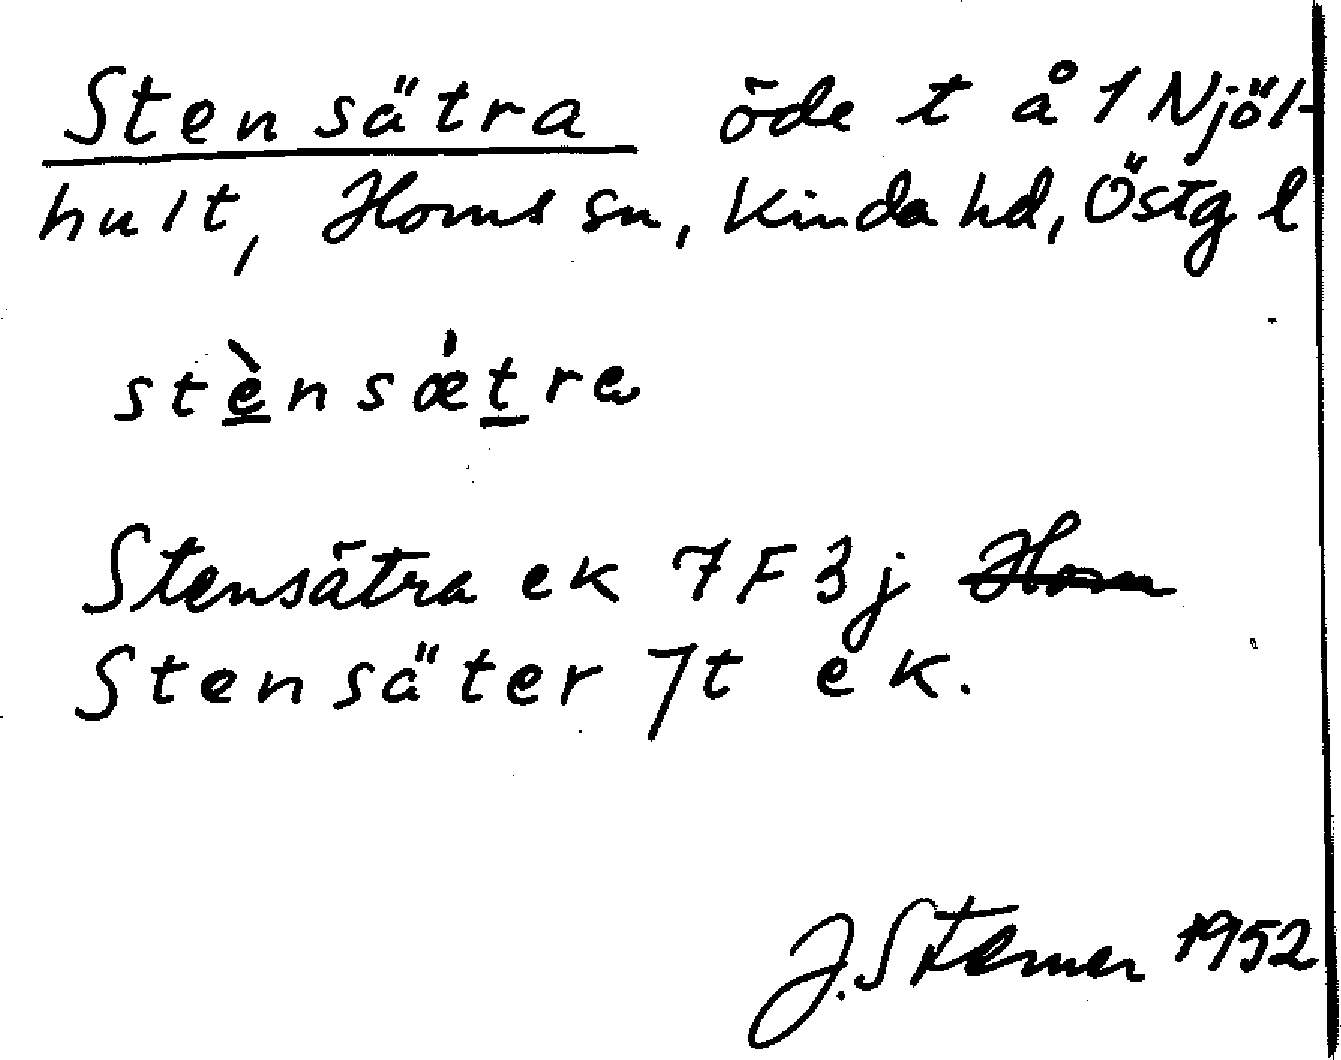 Stensätra öde t å 1 Njöl-
hult, Horns sn, Kinda hd, Östg l
stènsǽtra
Stensätra ek 7F3j
Stensäter Jt ek.
J. Sterner 1952